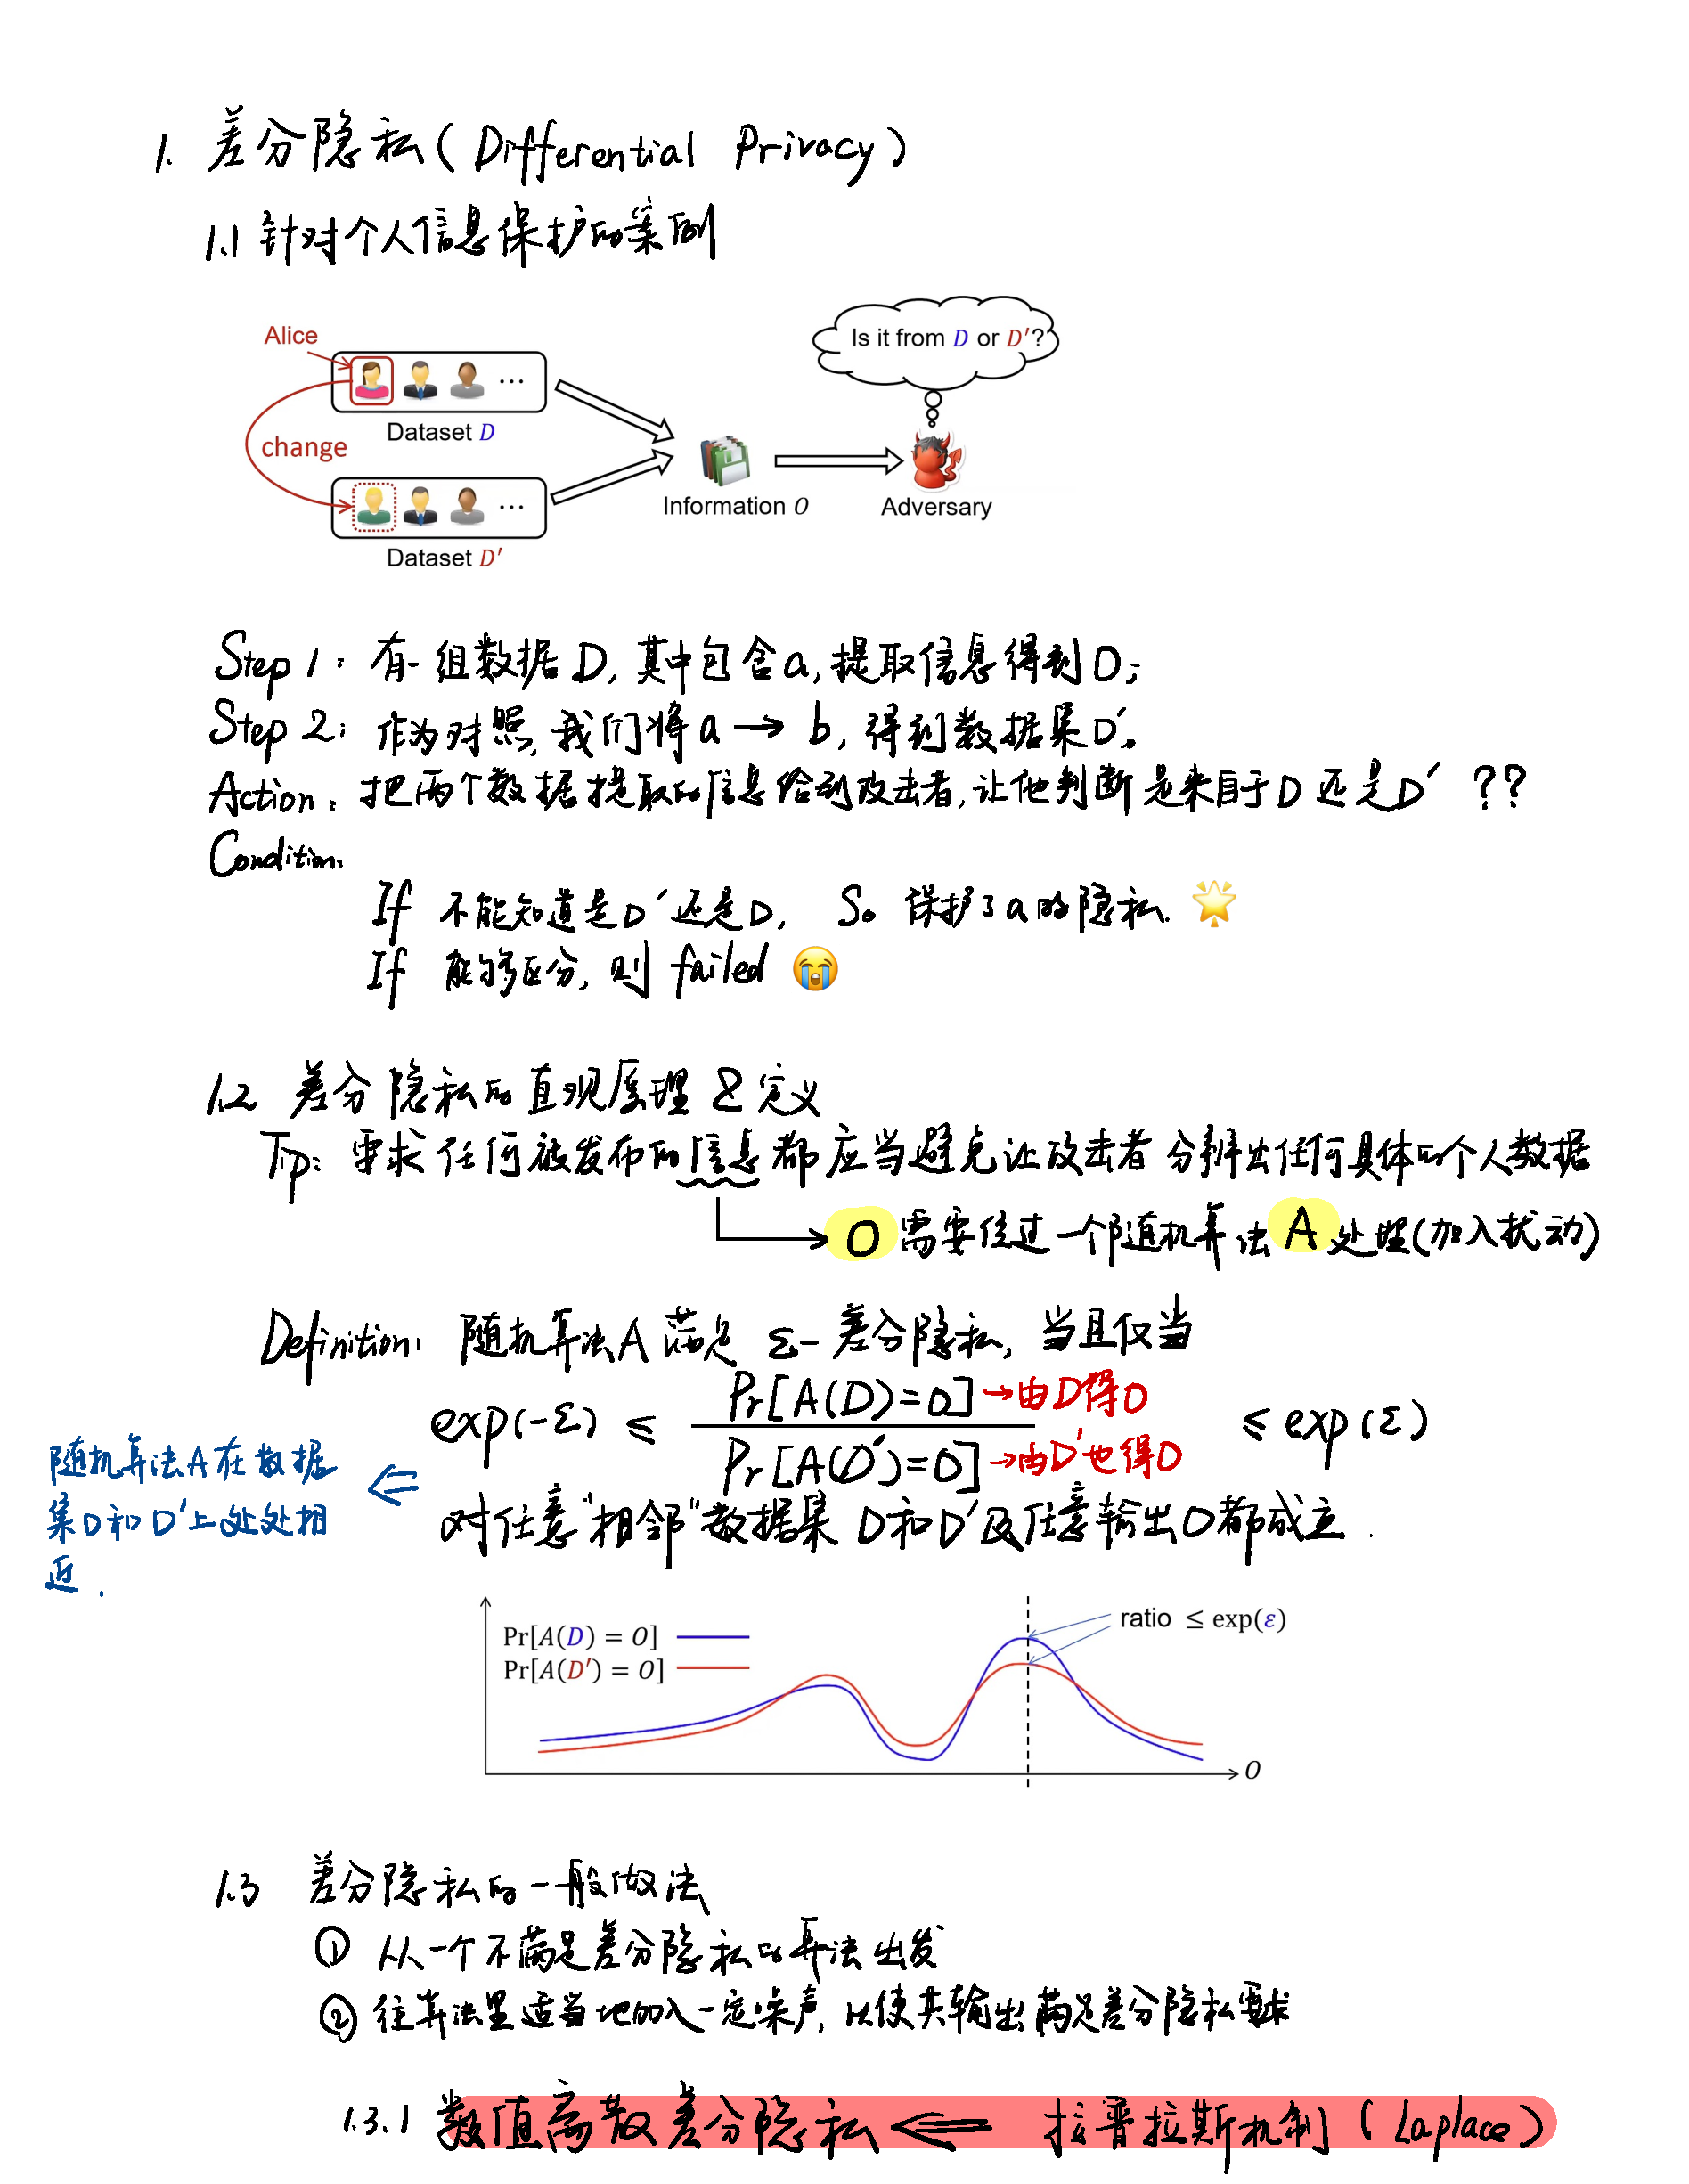 1. 差分隐私(Differential Privacy)
1.1 针对个人信息保护的案例
Is it from D or D′?
Alice
Dataset D
change
Information O
Adversary
Dataset D′
Step 1: 有一组数据D, 其中包含a, 提取信息得到O;
Step 2: 作为对照, 我们将a → b, 得到数据集D′。
Action: 把两个数据提取的信息给到攻击者, 让他判断是来自于D还是D′ ??
Condition:
If 不能知道是D′还是D, So 保护了a的隐私. 🌟
If 能够区分, 则 failed 😭
1.2 差分隐私的直观原理 & 定义
Tip: 要求任何被发布的信息都应当避免让攻击者分辨出任何具体的个人数据
→ O 需要经过一个随机算法 A 处理(加入扰动)
Definition: 随机算法A满足 ε-差分隐私, 当且仅当
exp(-ε) ≤ Pr[A(D)=O] →由D得O
Pr[A(D′)=O] →由D′也得O ≤ exp(ε)
随机算法A在数据
集D和D′上处处相
近.
⇐
对任意"相邻"数据集 D和D′及任意输出O都成立.
ratio ≤ exp(ε)
Pr[A(D) = O]
Pr[A(D′) = O]
O
1.3 差分隐私的一般做法
① 从一个不满足差分隐私的算法出发
② 往算法里适当地加入一定噪声, 以使其输出满足差分隐私要求
1.3.1 数值离散差分隐私 ⇐ 拉普拉斯机制 (Laplace)